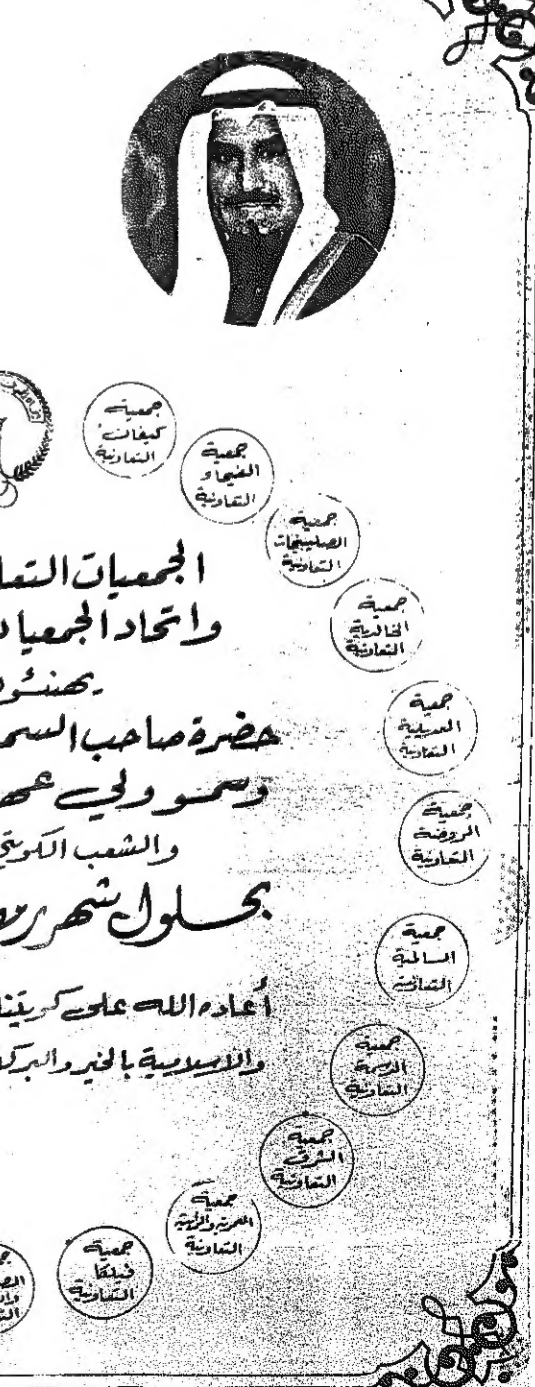 جمعية
كيفان
التعاونية
جمعية
الفيحاء
التعاونية
جمعية
الصليبخات
التعاونية
جمعية
الخالدية
التعاونية
جمعية
العديلية
التعاونية
جمعية
الروضة
التعاونية
جمعية
السالمية
التعاونية
جمعية
الدسمة
التعاونية
جمعية
الشرق
التعاونية
جمعية
التعاونية
جمعية
فيلكا
التعاونية
الجمعيات التعا
واتحاد الجمعيا
يهنئو
حضرة صاحب السم
وسمو ولي عه
والشعب الكويتي
بحلول شهر رم
أعاده الله على كويتنا
والاسلامية بالخير والبركا